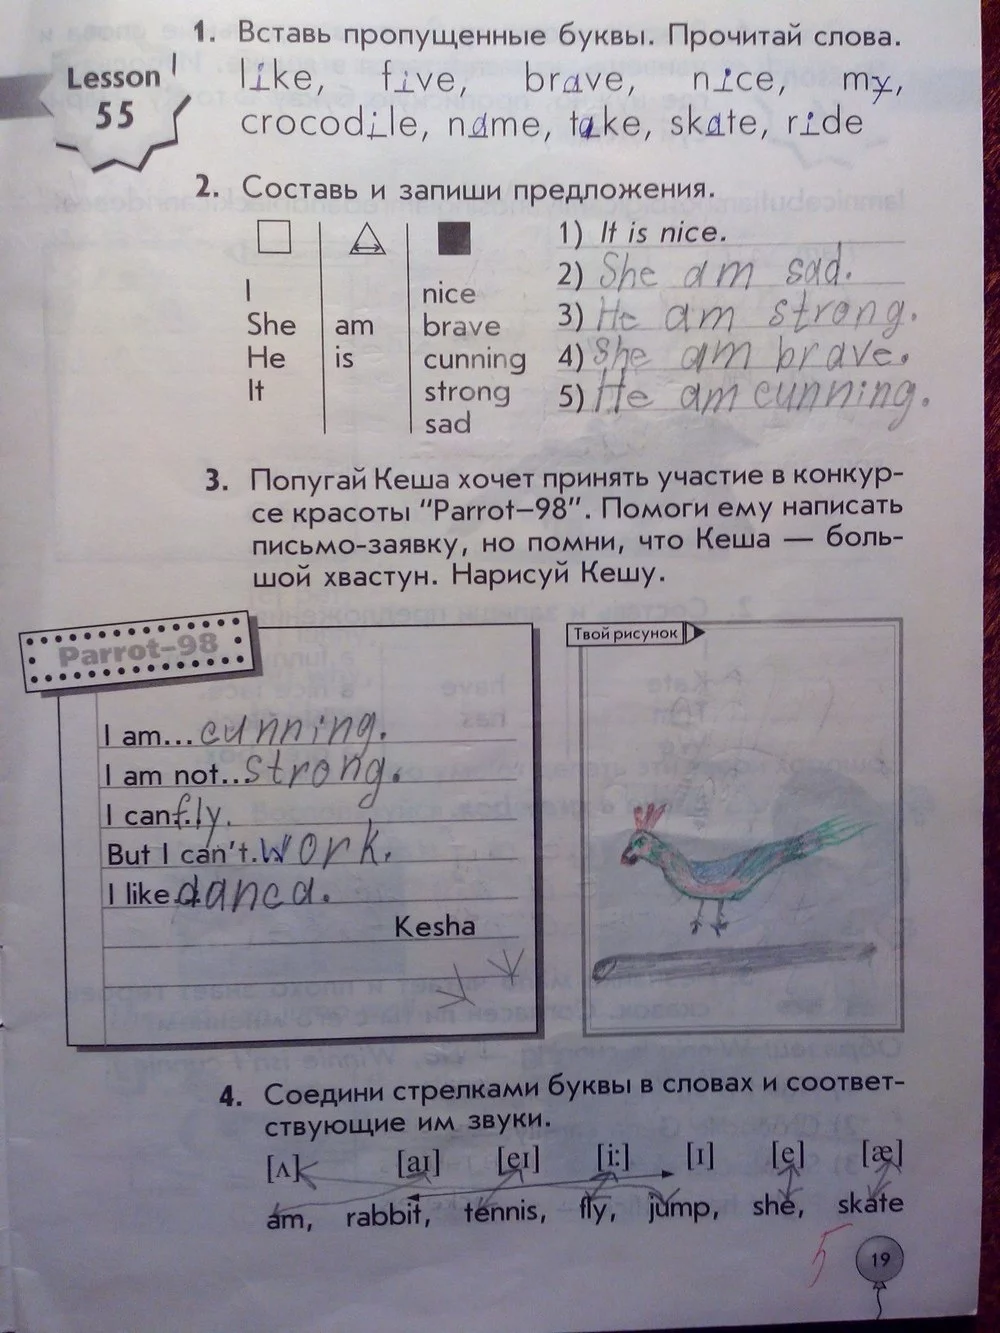 Lesson
55
1. Вставь пропущенные буквы. Прочитай слова.
like, five, brave, nice, my,
crocodile, name, take, skate, ride
2. Составь и запиши предложения.
I
She am
He is
It
nice
brave
cunning
strong
sad
1) It is nice.
2) She am sad.
3) He am strong.
4) She am brave.
5) He am cunning.
3. Попугай Кеша хочет принять участие в конкур-
се красоты "Parrot–98". Помоги ему написать
письмо-заявку, но помни, что Кеша — боль-
шой хвастун. Нарисуй Кешу.
Parrot–98
I am... cunning.
I am not... strong.
I can fly.
But I can't. work.
I like danca.
Kesha
Твой рисунок
4. Соедини стрелками буквы в словах и соответ-
ствующие им звуки.
[ʌ] [aɪ] [eɪ] [i:] [ɪ] [e] [æ]
am, rabbit, tennis, fly, jump, she, skate
5
19